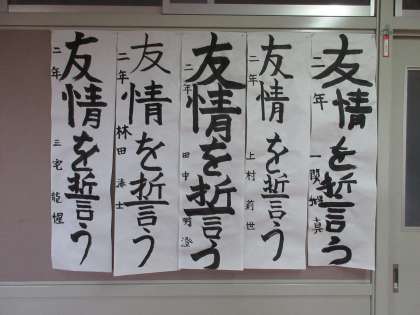 友情を誓う
二年 一関 真
友情を誓う
二年 上村 若世
友情を誓う
二年 田中 明澄
友情を誓う
二年 林田 湊士
友情を誓う
二年 三宅 龍惺